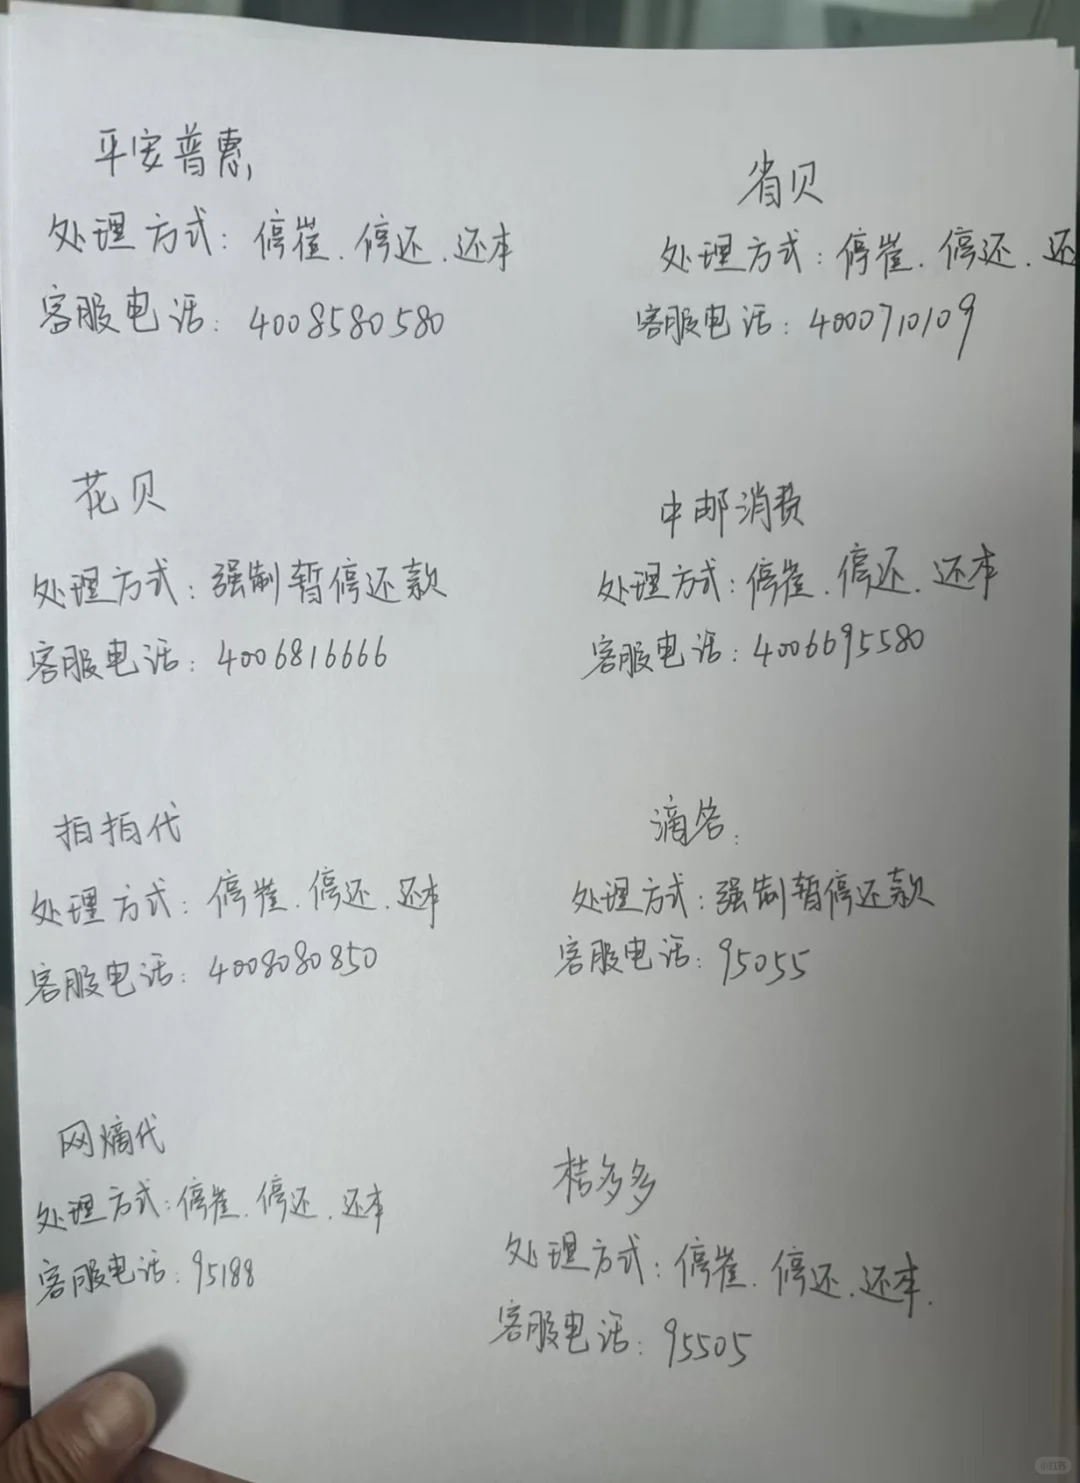 平安普惠,
处理方式：停崔.停还.还本
客服电话：4008580580
省贝
处理方式：停崔.停还.还
客服电话：4000710109
花贝
处理方式：强制暂停还款
客服电话：4006816666
中邮消费
处理方式：停崔.停还.还本
客服电话：4006695580
拍拍代
处理方式：停崔.停还.还本
客服电话：4008080850
滴答.
处理方式：强制暂停还款
客服电话：95055
网熵代
处理方式：停崔.停还.还本
客服电话：95188
桔多多
处理方式：停崔.停还.还本.
客服电话：95505
小红书